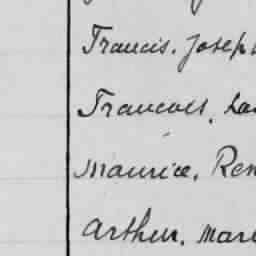 Francis. Joseph
Francois, La
Maurice, Ren
Arthur. Mari